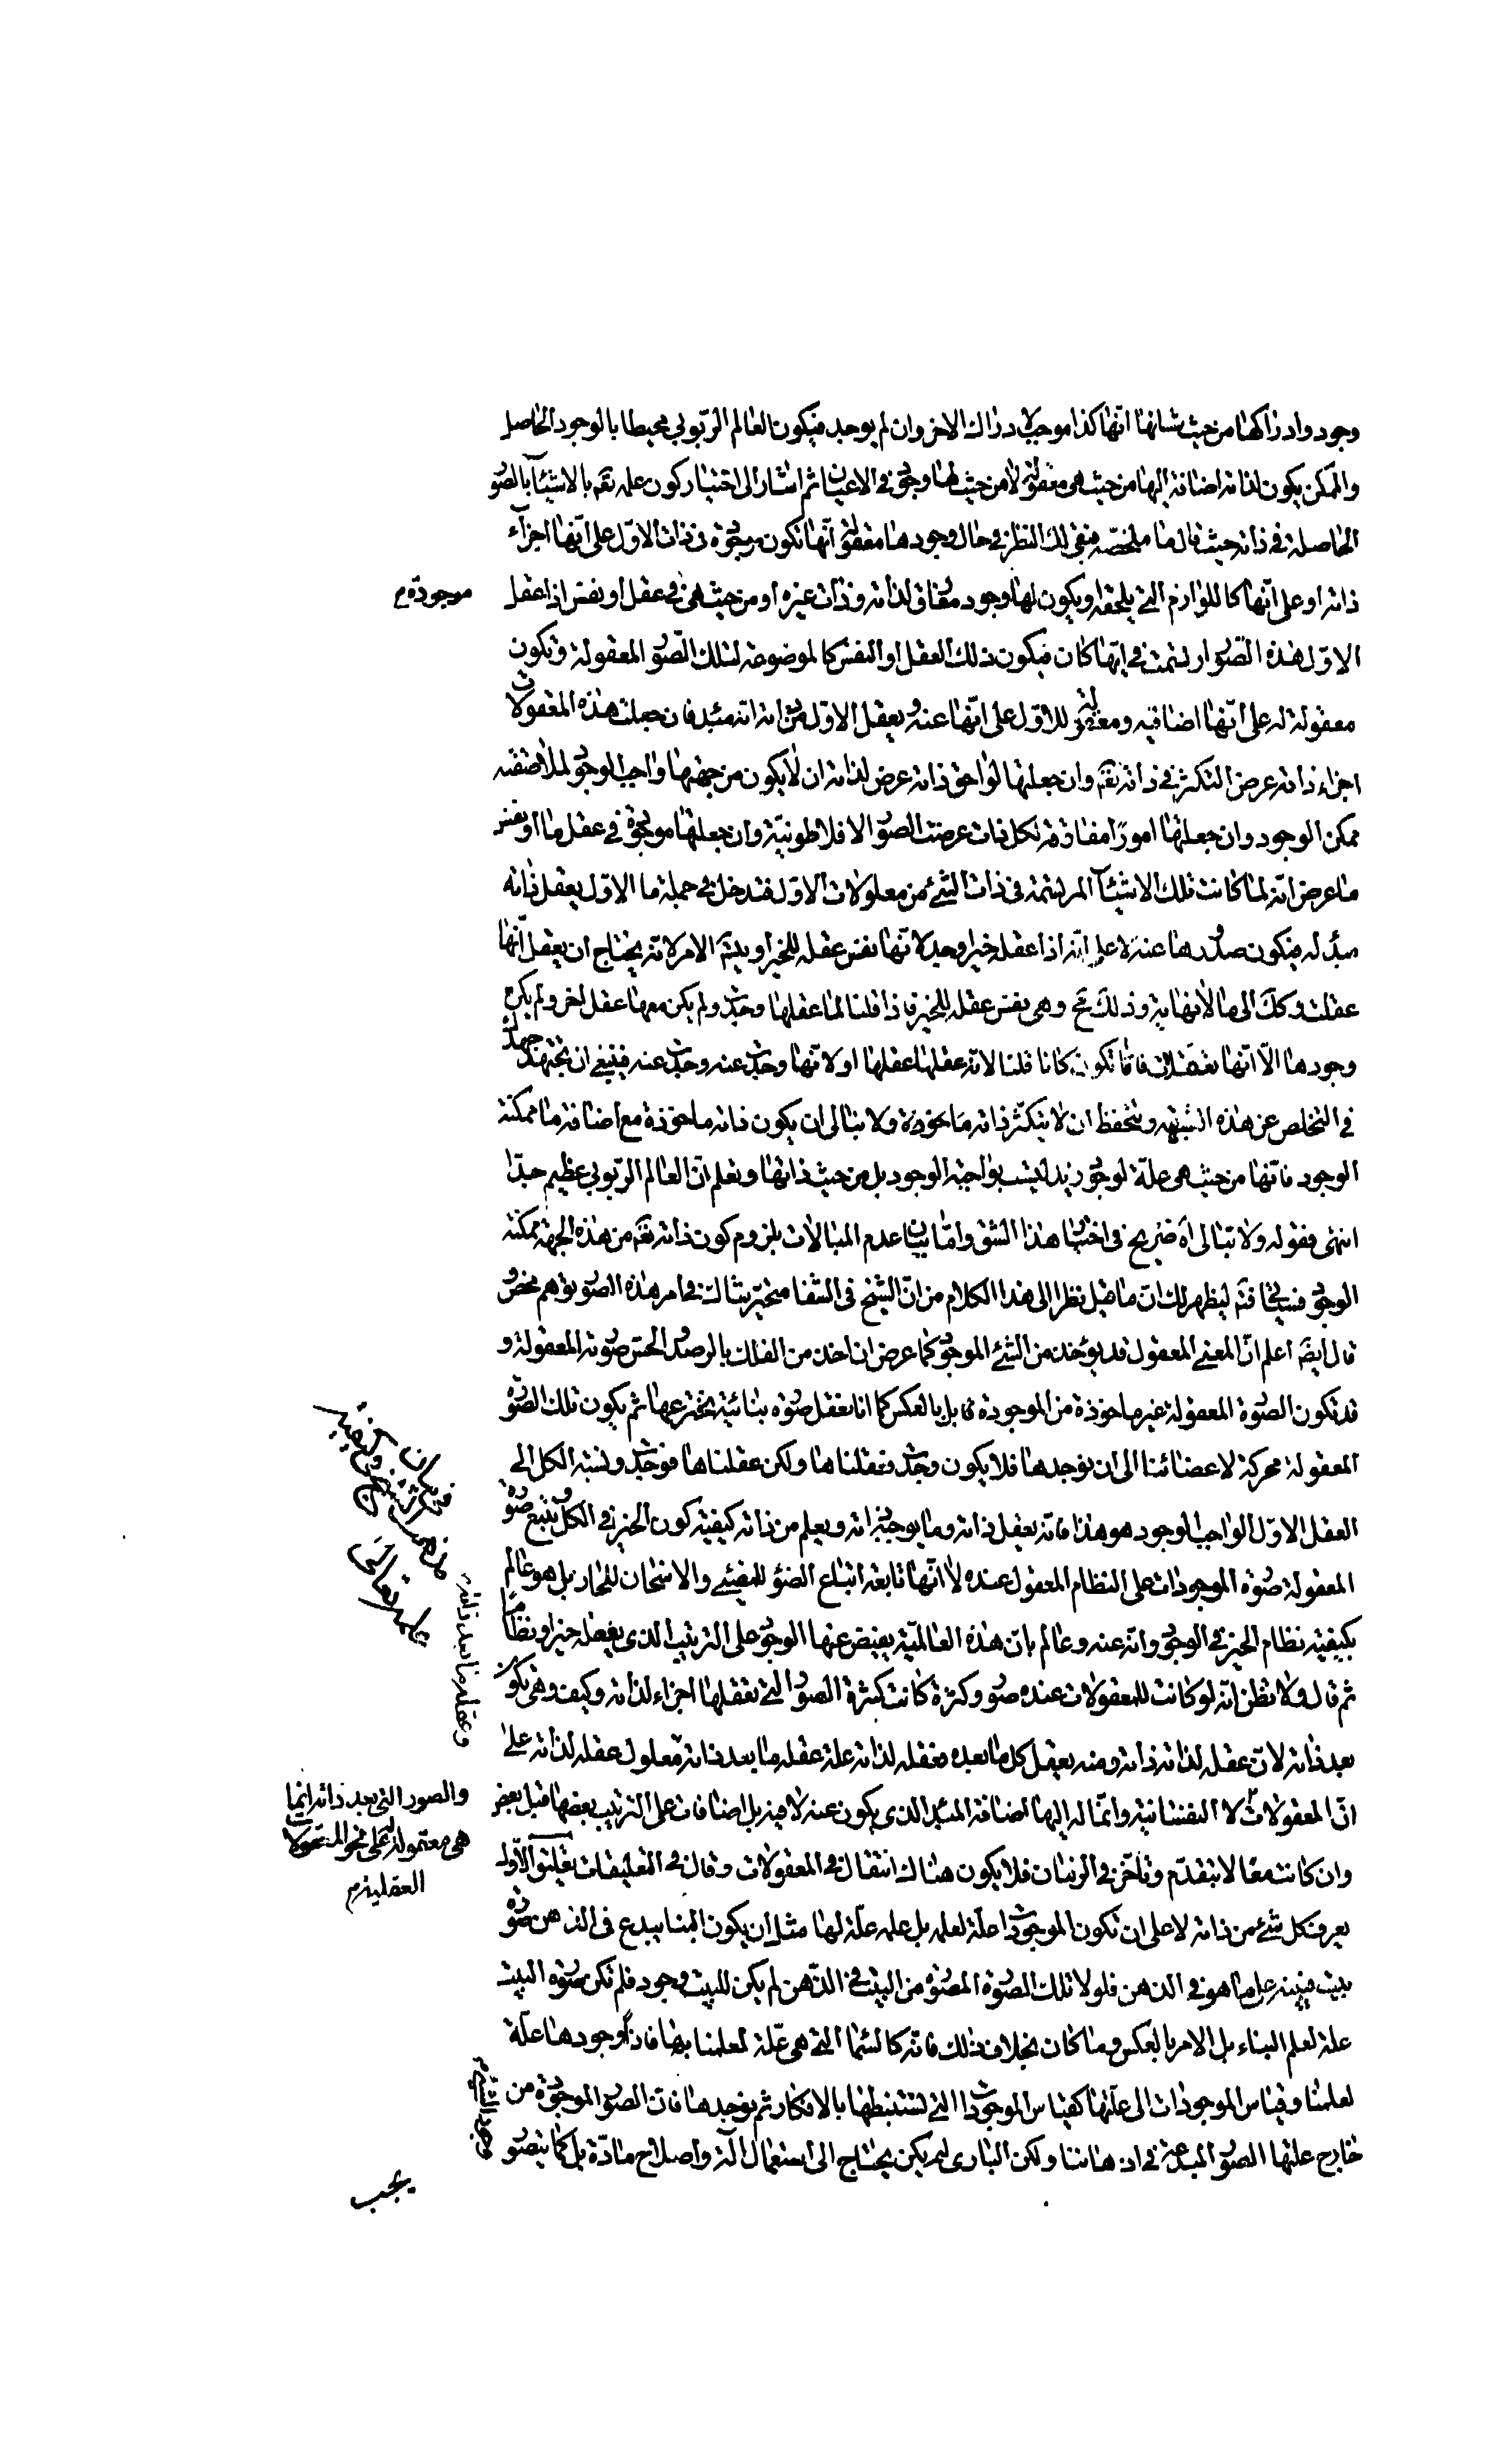 وجود وادراكها من حيث شانها انها كذا موجبا لادراك الاخر وان لم يوجد فيكون العالم الربوبى محيطا بالوجود الحاصل
والممكن يكون لذاته اضافة اليها من حيث هى معقولة لا من حيث لها وجود فى الاعيان ثم اشار الى اختيار كون علمه تعه بالاشياء بالصور
الحاصلة فى ذاته حيث قال ما ملخصه فبقى لك النظر فى حال وجودها معقولة انها تكون موجودة فى ذات الاول على انها اجزاء
ذاته او على انها كاللوازم التى يلحقه او يكون لها وجود مفارق لذاته وذات غيره او من حيث هى فى عقل او نفس اذا عقل
موجودة م
الاول هذه الصور ارتسمت فى ايها كان فيكون ذلك العقل او النفس كالموضوعة لتلك الصور المعقولة وتكون
معقولة له على انها اضافيه ومعقولة للاول على انها عنه ويعقل الاول من ذاته انه مبدء فان جعلت هذه المعقولات
اجزاء ذاته عرض التكثر فى ذاته تعه وان جعلتها لواحق ذاته عرض لذاته ان لا يكون من جهتها واجب الوجود لملاصقته
ممكن الوجود وان جعلتها امورا مفارقة لكل ذات عرضت الصور الافلاطونية وان جعلتها موجودة فى عقل ما او نفس
ما عرض انه لما كانت تلك الاشياء المرتسمة فى ذات الشئ من معلولات الاول فتدخل فى جملة ما الاول يعقل ذاته
مبدء له فيكون صدورها عنه لا على انه اذا عقله خيرا وجد لانها نفس عقله للخير او يتسم الامر لانه يحتاج ان يعقل انها
عقلت وكك الى ما لا نهاية وذلك مح وهى نفس عقله للخير فاذا قلنا لما عقلها وجدت ولم يكن معها عقل اخر ولم يكن
وجودها الا انها تعقلات فانما تكون كانا قلنا لانه عقلها عقلها او لانها وجدت عنه وجدت عنه فينبغى ان تجتهد جهدك
فى التخلص عن هذه الشبهه وتتحفظ ان لا يتكثر ذاته ماخوذة ولا تبالى ان يكون ذاته ماخوذة مع اضافة ما ممكنة
الوجود فانها من حيث هى علة لوجود زيد ليست بواجبة الوجود بل من حيث ذاتها وتعلم ان العالم الربوبى عظيم جدا
انتهى فقوله ولا تبالى اه صريح فى اختيار هذا الشق واما بيان عدم المبالات بلزوم كون ذاته تعه من هذه الجهة ممكنة
الوجود فسيجئ فثم ليظهر لك ان ما قيل نظرا الى هذا الكلام من ان الشيخ فى الشفا متحير شاك فى امر هذه الصور توهم محض و
قال ايضه اعلم ان المعنى المعقول قد يؤخذ من الشئ الموجود كما عرض ان اخذ من الفلك بالرصد والحس صورته المعقولة و
قد تكون الصورة المعقولة غير ماخوذة من الموجودة فا بل بالعكس كما انا نعقل صورة بنائية نخترعها ثم يكون تلك الصورة
المعقولة محركة لاعضائنا الى ان نوجدها فلا يكون وجدت فعقلناها ولكن عقلناها فوجدت ونسبة الكل الى
العقل الاول الواجب الوجود هو هذا فانه يعقل ذاته وما يوجبه ذاته ويعلم من ذاته كيفية كون الخير فى الكل فتتبع صورة
المعقولة صورة الموجودات على النظام المعقول عنده لا انها تابعة اتباع الضوء للمضئ والاسخان للحار بل هو عالم
بكيفية نظام الخير فى الوجود وانه عنه وعالم بان هذه العالمية يفيض عنها الوجود على الترتيب الذى يعقله خيرا ونظاما
ثم قال ولا تظن انه لو كانت للمعقولات عنده صور وكثرة كانت كثرة الصور التى تعقلها اجزاء لذاته وكيف وهى تكون
بعد ذاته لان عقله لذاته ذاته ومنه يعقل كل ما بعده فعقله لذاته علة عقله ما بعد ذاته معلول عقله لذاته على
ان المعقولات لا النفسانية وانما له اليها اضافة المبدء الذى يكون عنه لا فيه بل اضافات على الترتيب بعضها قبل بعض
وان كانت معا لا يتقدم وتاخر فى الزمان فلا يكون هناك انتقال فى المعقولات وقال فى التعليقات تعليق الاول
يعرف كل شئ من ذاته لا على ان تكون الموجودات علة لعلمه بل علمه علة لها مثل ان يكون البناء يبدع فى الذهن صورة
بيت فيبنيه على ما هو فى الذهن فلولا تلك الصورة المصورة من البيت فى الذهن لم يكن للبيت وجود فلم تكن صورة البيت
علة لعلم البناء بل الامر بالعكس وما كان بخلاف ذلك فانه كالسماء التى هى علة لعلمنا بها فاذا وجودها علة
لعلمنا وقياس الموجودات الى علمها كقياس الموجودات التى نستنبطها بالافكار ثم نوجدها فان الصور الموجودة من
خارج علتها الصور المبدعة فى اذهاننا ولكن البارى لم يكن يحتاج الى استعمال آلة واصلاح مادة بل كما يتصور
فى بيان
مذهب الشيخ فى كيفية
علمه تعالى
وعقله ما بعد ذاته
والصور التى بعد ذاته انما
هى معقولة على نحو المعقولات
العقلية م
يجب